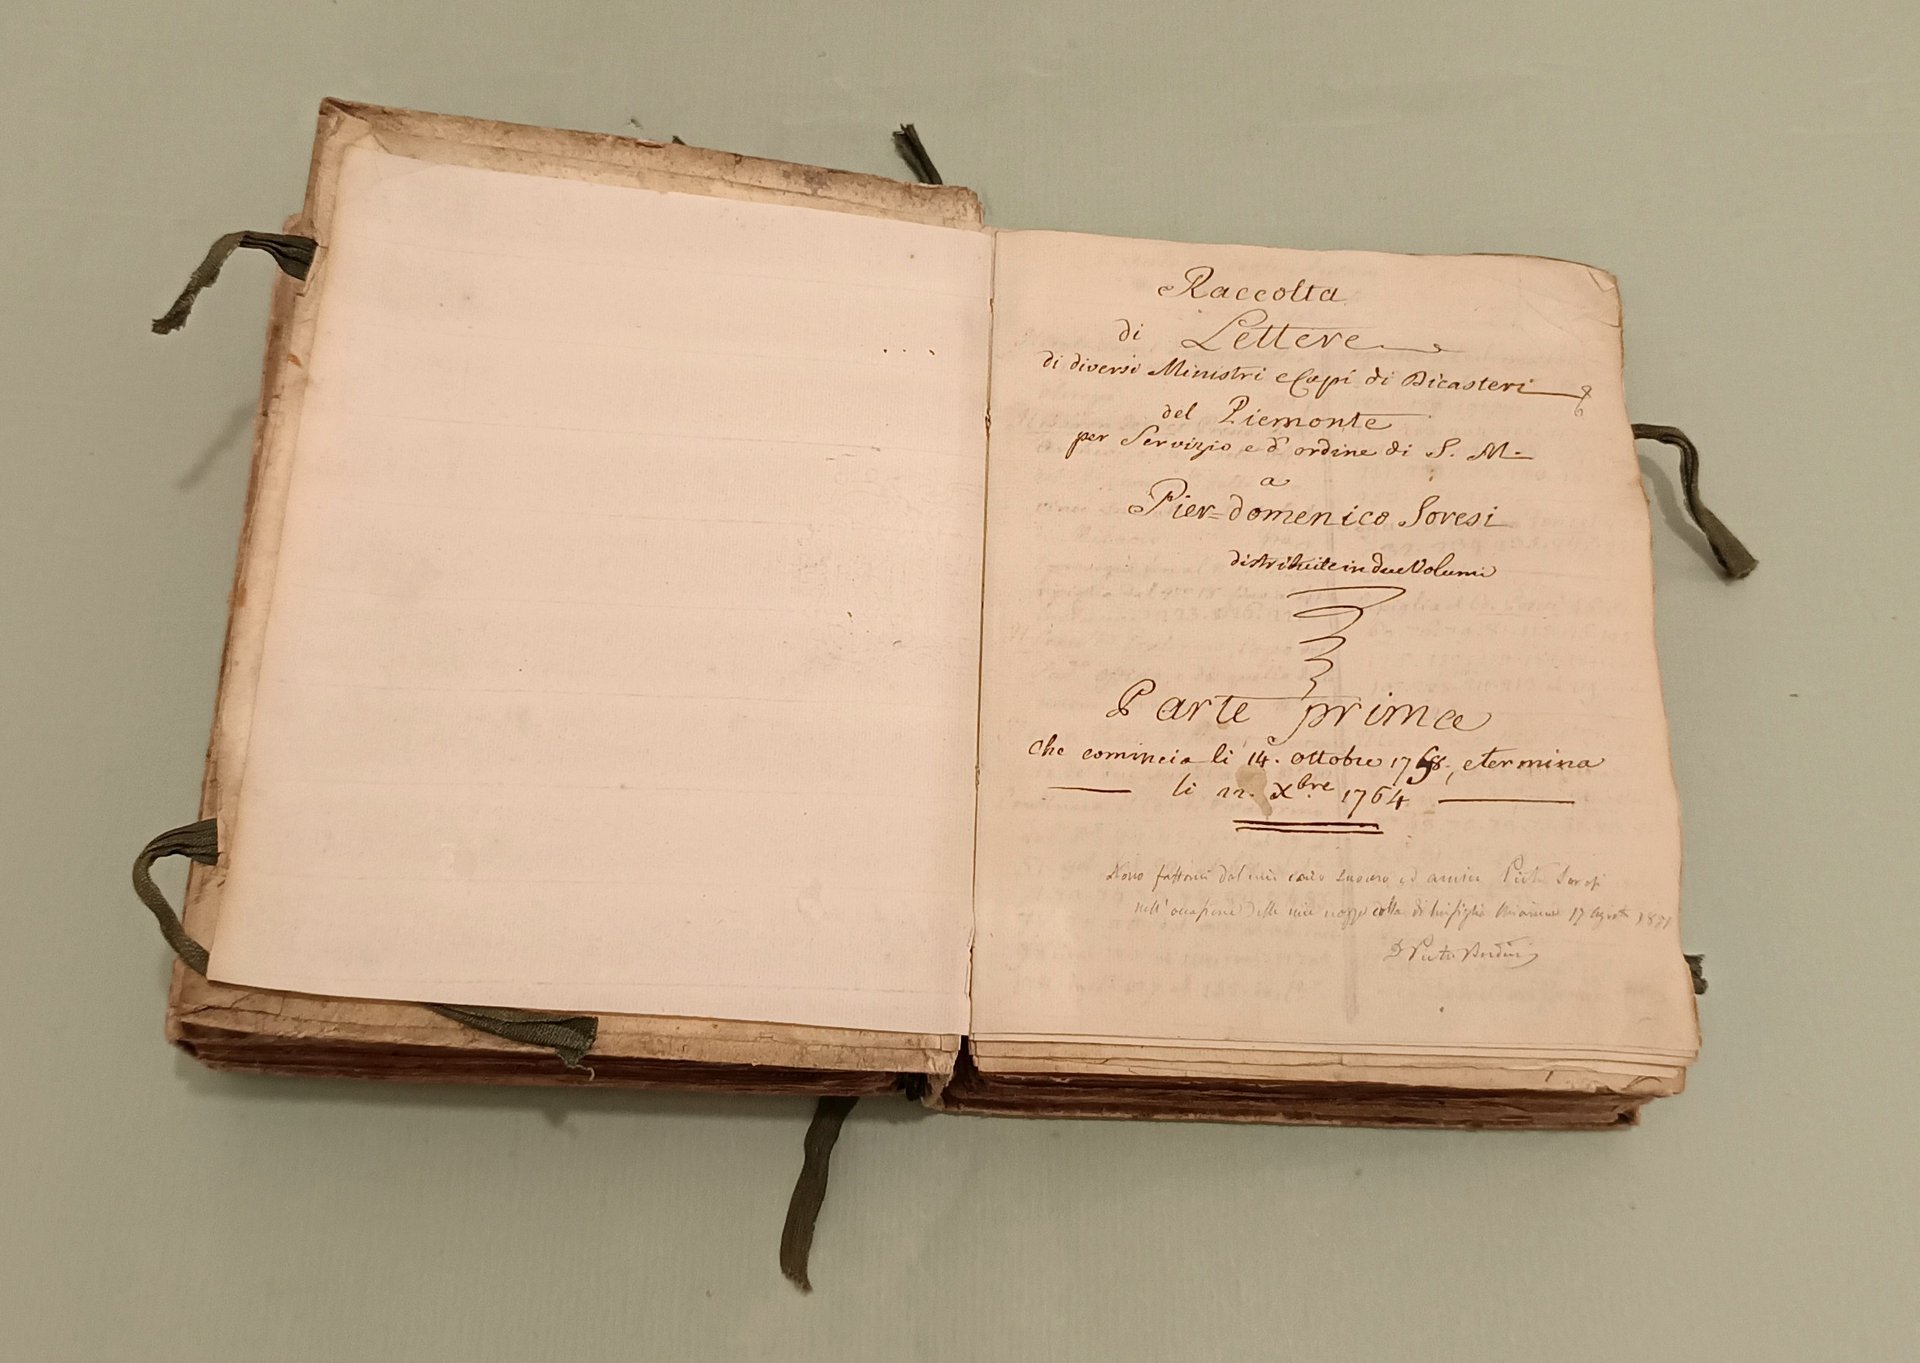 Raccolta
di Lettere
di diversi Ministri e Capi di Dicasteri
del Piemonte
per Servizio e d'ordine di S. M.
a
Pier=domenico Soresi
distribuite in due Volumi
Parte prima
che comincia li 14. ottobre 1758, e termina
li 22. Xbre 1764
Dono fattomi dal mio caro suocero ed amico Soresi
nell'occasione delle mie nozze colla di lui figlia 17 Agosto